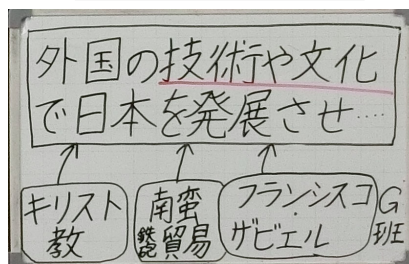 外国の技術や文化
で日本を発展させ‥‥
キリスト
教
南蛮
鉄砲 貿易
フランシスコ
ザビエル
G
班